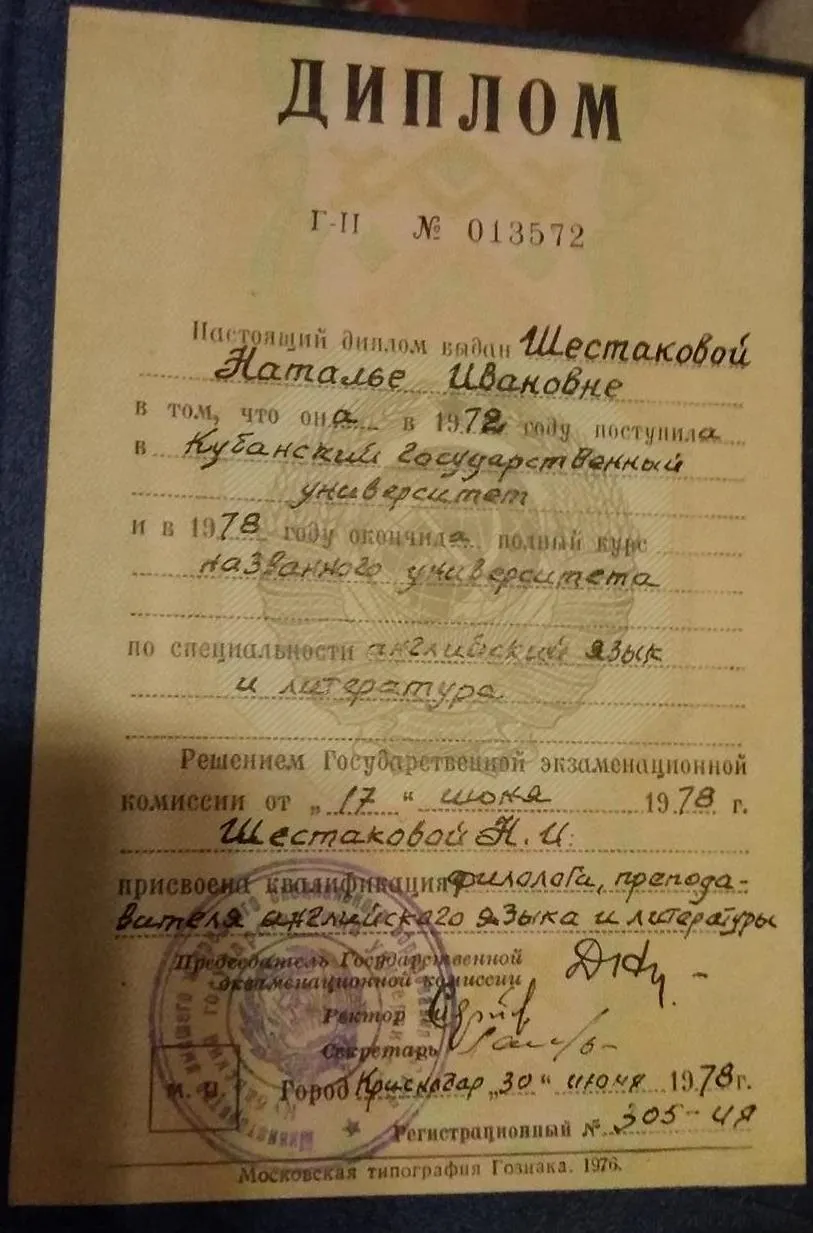 ДИПЛОМ
Г-II № 013572
Настоящий диплом выдан Шестаковой
Наталье Ивановне
в том, что она в 1972 году поступила
в Кубанский государственный
университет
и в 1978 году окончила полный курс
названного университета
по специальности английский язык
и литература
Решением Государственной экзаменационной
комиссии от „17“ июня 1978 г.
Шестаковой Н. И.
присвоена квалификация филолога, препода-
вателя английского языка и литературы
Председатель Государственной
экзаменационной комиссии
Ректор
Секретарь
М. П.
Город Краснодар „30“ июня 1978 г.
Регистрационный № 305-ЧЯ
Московская типография Гознака. 1976.